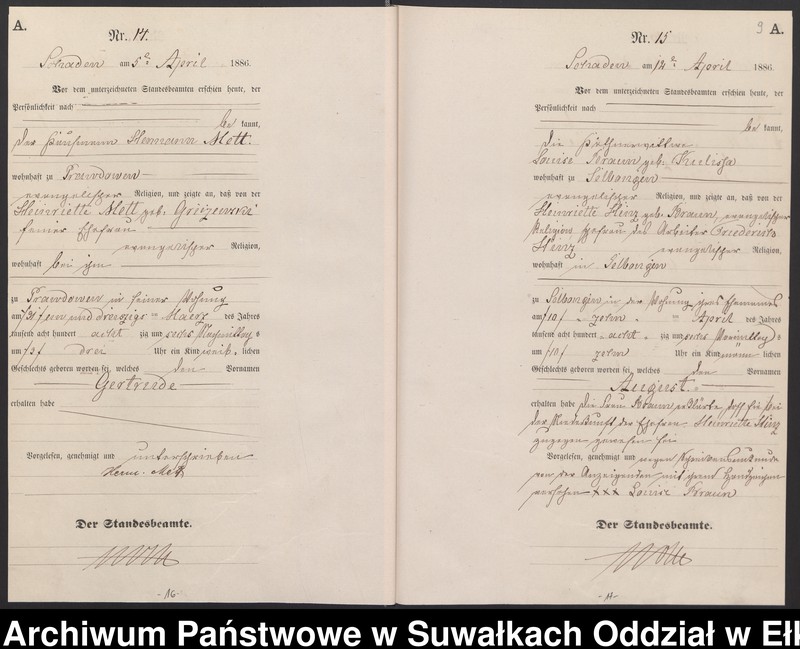 A.
Nr. 14.
Schaden am 5ten April 1886.
Vor dem unterzeichneten Standesbeamten erschien heute, der
Persönlichkeit nach
be kannt,
der Hermann Mett.
wohnhaft zu Prawdowen
evangelischer Religion, und zeigte an, daß von der
Heinriette Mett geb.
seiner Ehefrau
evangelischer Religion,
wohnhaft bei ihm
zu Prawdowen in seiner Wohnung
am /31/ ein und dreizigs ten Maerz des Jahres
tausend acht hundert acht zig und sechs Nachmittag s
um /3/ drei Uhr ein Kind weib lichen
Geschlechts geboren worden sei, welches den Vornamen
Gertrude
erhalten habe
Vorgelesen, genehmigt und unterschrieben
Herm. Mett
Der Standesbeamte.
-16-
9 A.
Nr. 15
Schaden am 12ten April 1886.
Vor dem unterzeichneten Standesbeamten erschien heute, der
Persönlichkeit nach
be kannt,
die
Louise Braun geb. Kulissa
wohnhaft zu Selbongen
evangelischer Religion, und zeigte an, daß von der
Heinriette Hinz geb. Braun, evangelischer
Religion Ehefrau des Arbeiter Friedrich
Hinz evangelischer Religion,
wohnhaft in Selbongen
zu Selbongen in der Wohnung ihres Ehemannes
am /10/ zehn ten April des Jahres
tausend acht hundert acht zig und sechs Vormittag s
um /10/ zehn Uhr ein Kind männ lichen
Geschlechts geboren worden sei, welches den Vornamen
August.
erhalten habe die Frau Braun erklärte, daß sie bei
der Niederkunft der Ehefrau Heinriette Hinz
zugegen gewesen sei
Vorgelesen, genehmigt und wegen Schreibensunkunde
von der Anzeigenden mit ihrem Handzeichen
versehen xxx Louise Braun
Der Standesbeamte.
Archiwum Państwowe w Suwałkach Oddział w Ełk